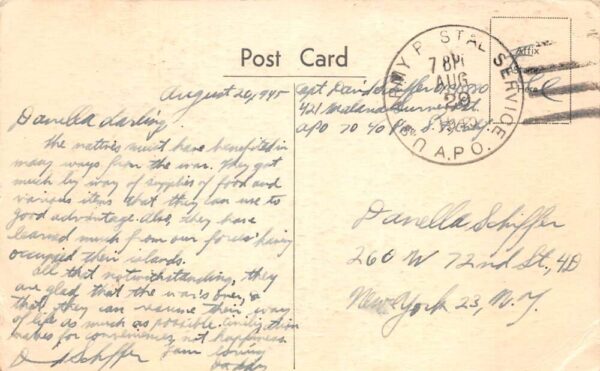 Post Card
August 20, 1945
Danella darling,
The natives must have benefited in
many ways from the war. They got
much by way of supplies of food and
various items that they can use to
good advantage. Also, they have
learned much from our forces having
occupied their islands.
All that notwithstanding, they
are glad that the war's over, &
that they can resume their way
of life as much as possible. Civilization
makes for conveniences, not happiness.
I am loving
Daddy
D Schiffer
Capt David Schiffer
421
APO 70 c/o P.M. S.F. Cal.
Free
Affix
ARMY POSTAL SERVICE
7 8PM
AUG
29
A.P.O.
Danella Schiffer
260 W 72nd St., 4D
New York 23, N.Y.